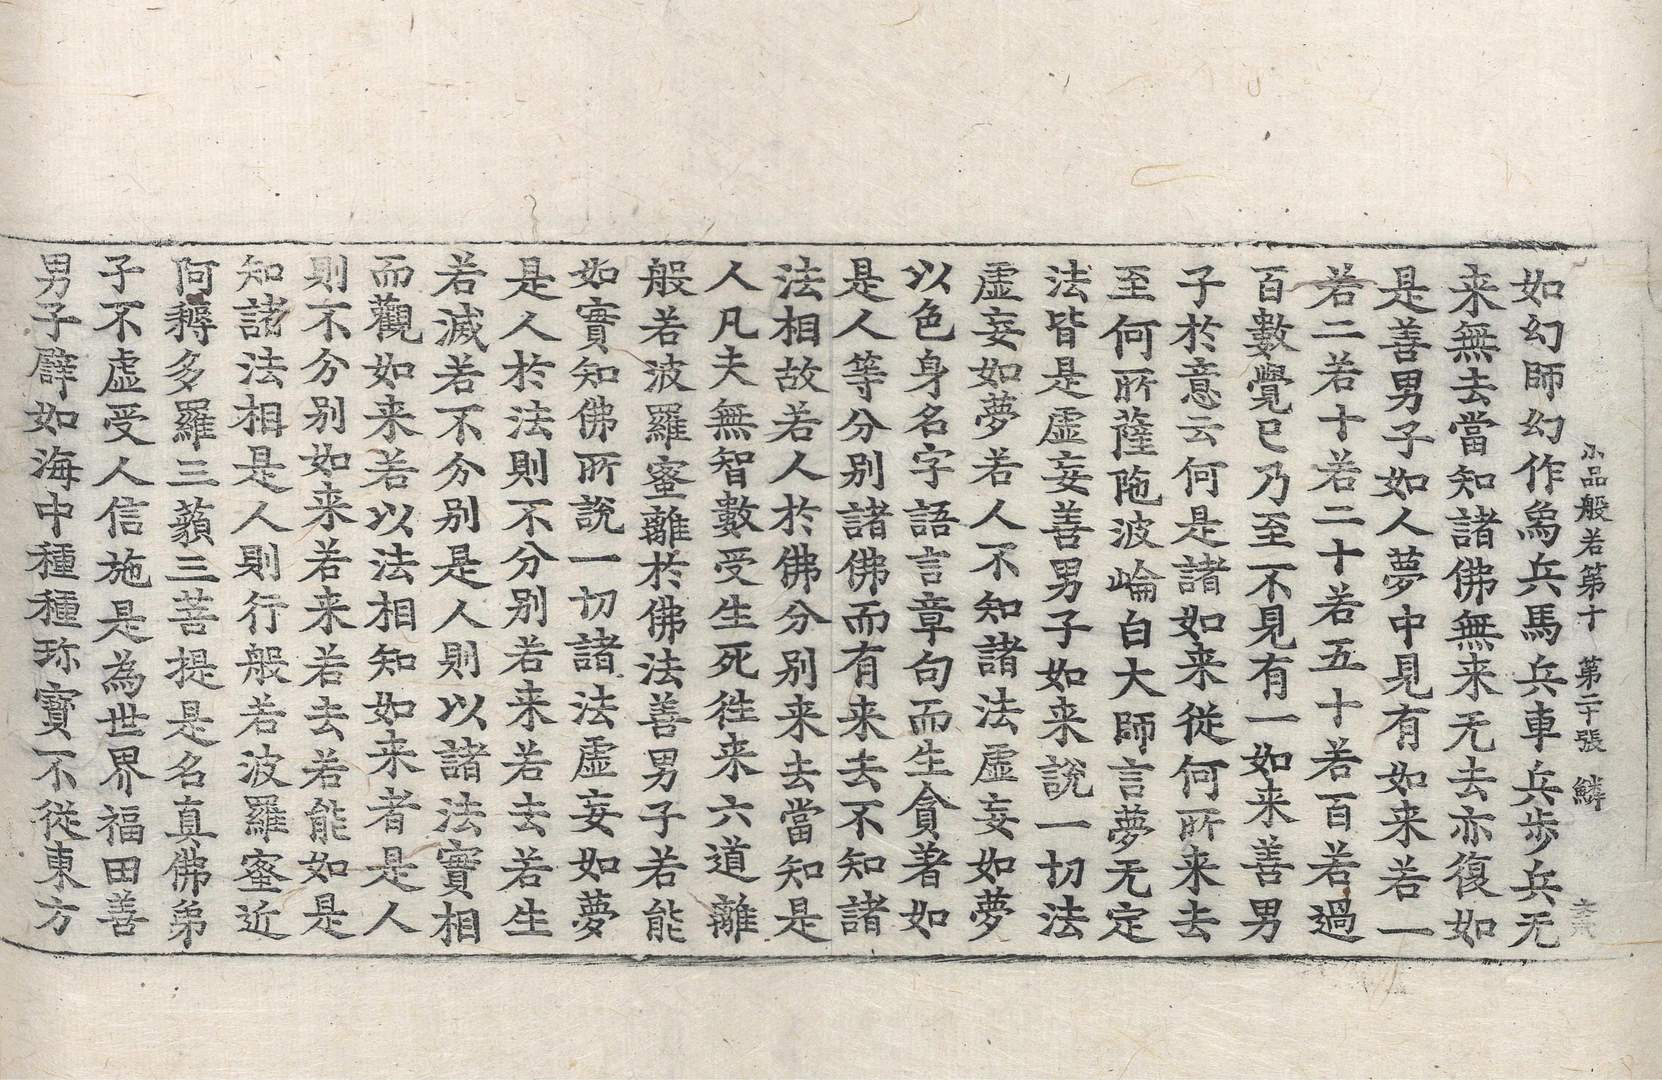 小品般若第十 第二十張 鱗
如幻師幻作爲兵馬兵車兵步兵无
来無去當知諸佛無来无去亦復如
是善男子如人夢中見有如来若一
若二若十若二十若五十若百若過
百數覺已乃至不見有一如来善男
子於意云何是諸如来從何所来去
至何所薩陁波崘白大師言夢无定
法皆是虛妄善男子如来說一切法
虛妄如夢若人不知諸法虛妄如夢
以色身名字語言章句而生貪著如
是人等分别諸佛而有来去不知諸
法相故若人於佛分别来去當知是
人凡夫無智數受生死徃来六道離
般若波羅蜜離於佛法善男子若能
如實知佛所說一切諸法虛妄如夢
是人於法則不分别若来若去若生
若滅若不分别是人則以諸法實相
而觀如来若以法相知如来者是人
則不分别如来若来若去若能如是
知諸法相是人則行般若波羅蜜近
阿耨多羅三藐三菩提是名真佛弟
子不虛受人信施是為世界福田善
男子譬如海中種種珎寶不從東方